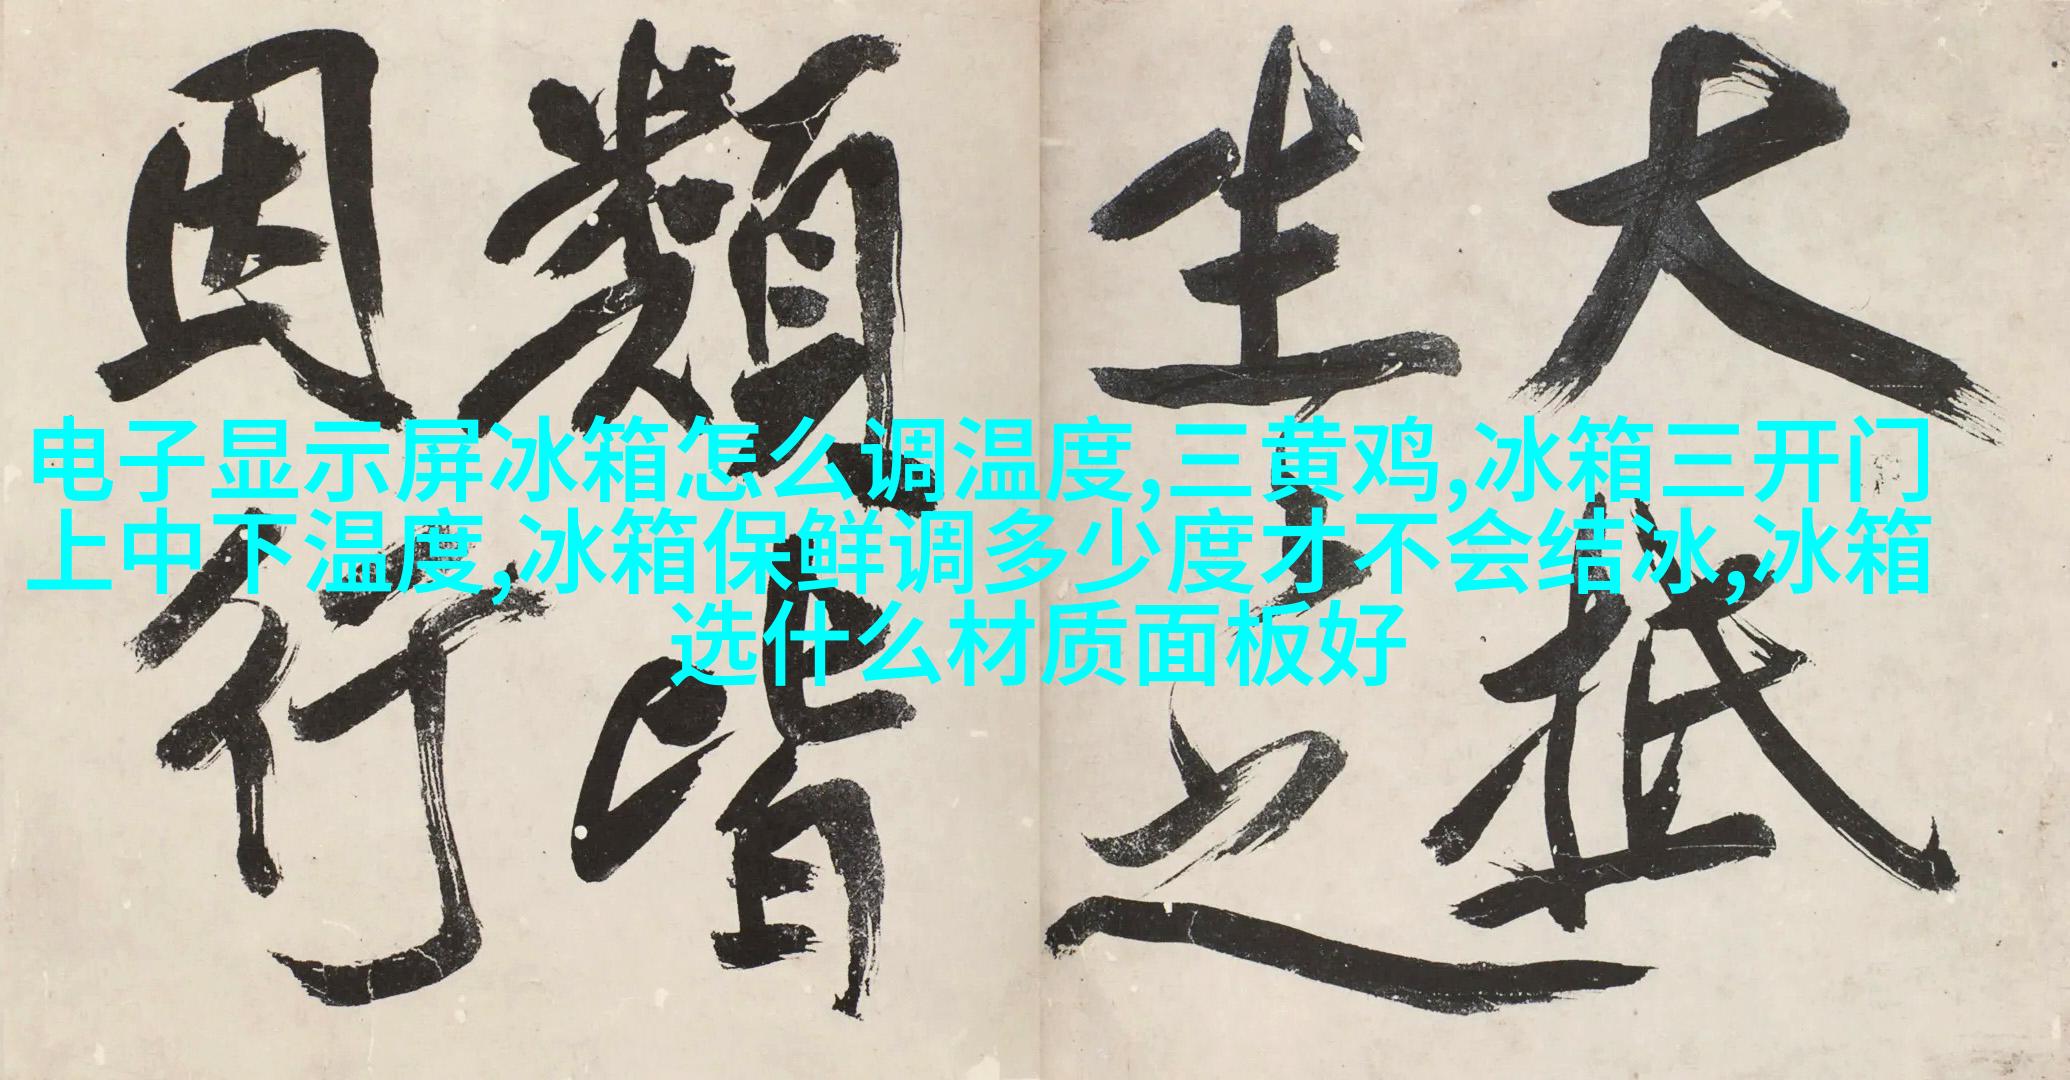 大抵
生之
類皆
因行
电子显示屏冰箱怎么调温度,三黄鸡,冰箱三开门
上中下温度,冰箱保鲜调多少度才不会结冰,冰箱
选什么材质面板好